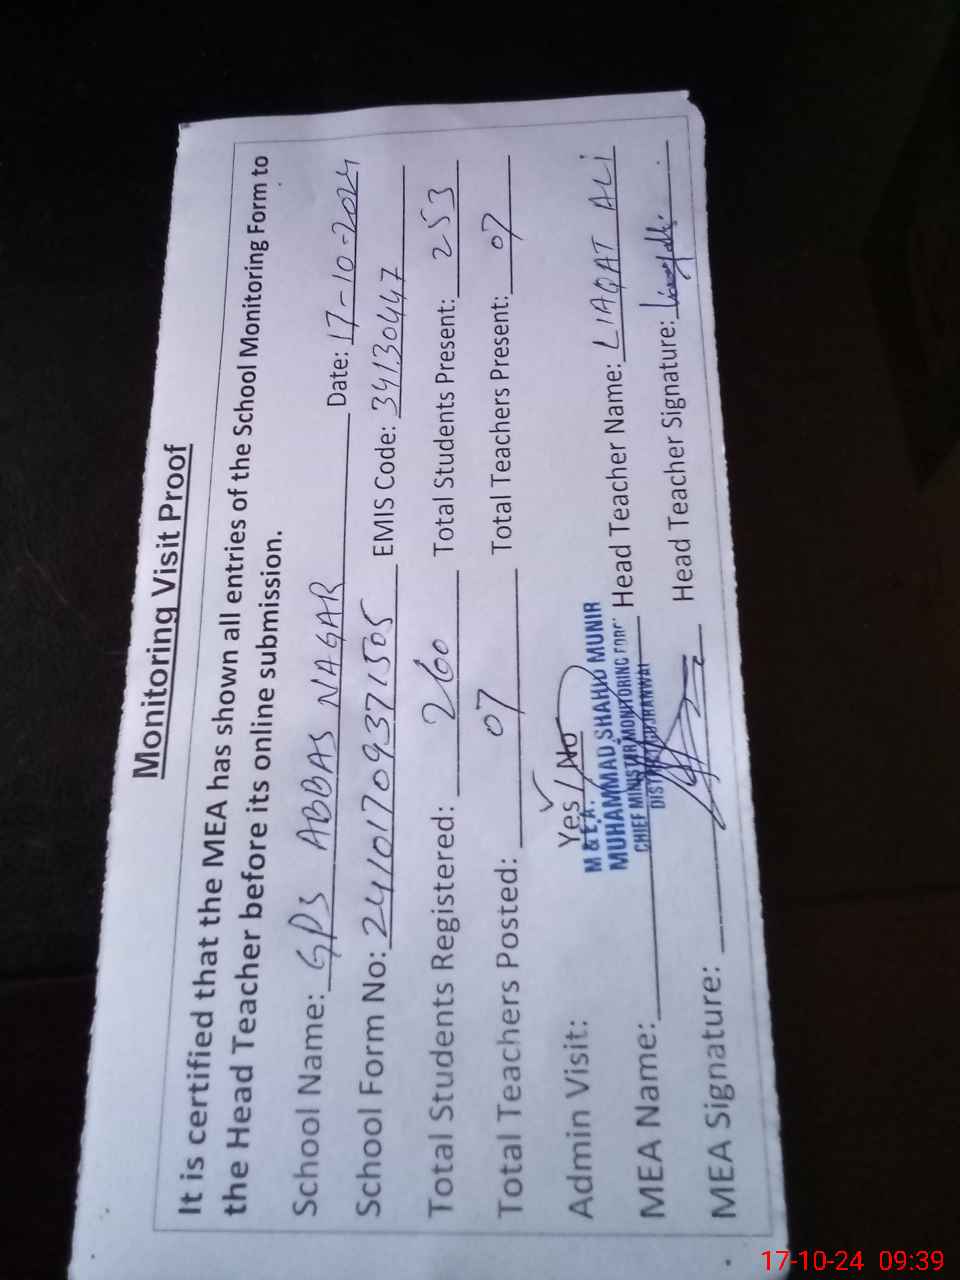 Monitoring Visit Proof
It is certified that the MEA has shown all entries of the School Monitoring Form to
the Head Teacher before its online submission.
School Name: GPS ABBAS NAGAR Date: 17-10-2024
School Form No: 24101709371505 EMIS Code: 34130447
Total Students Registered: 260 Total Students Present: 253
Total Teachers Posted: 07 Total Teachers Present: 07
Admin Visit: Yes / No
M & E.A.
MUHAMMAD SHAHID MUNIR
CHIEF MINISTER MONITORING FORC
DISTRICT GUJRANWAL
MEA Name: Head Teacher Name: LIAQAT ALI
MEA Signature: Head Teacher Signature:
17-10-24 09:39